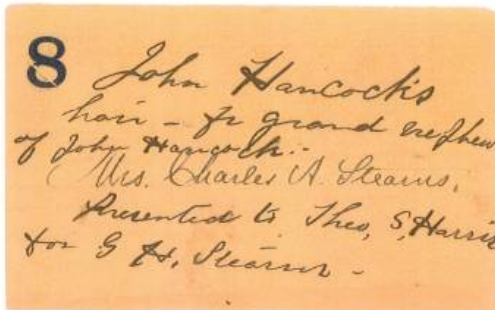 8
John Hancock's
hair - fr grand nephew
of John Hancock. -
Mrs. Charles A. Stearns,
Presented to Theo, S, Harris
for G H, Stearns -